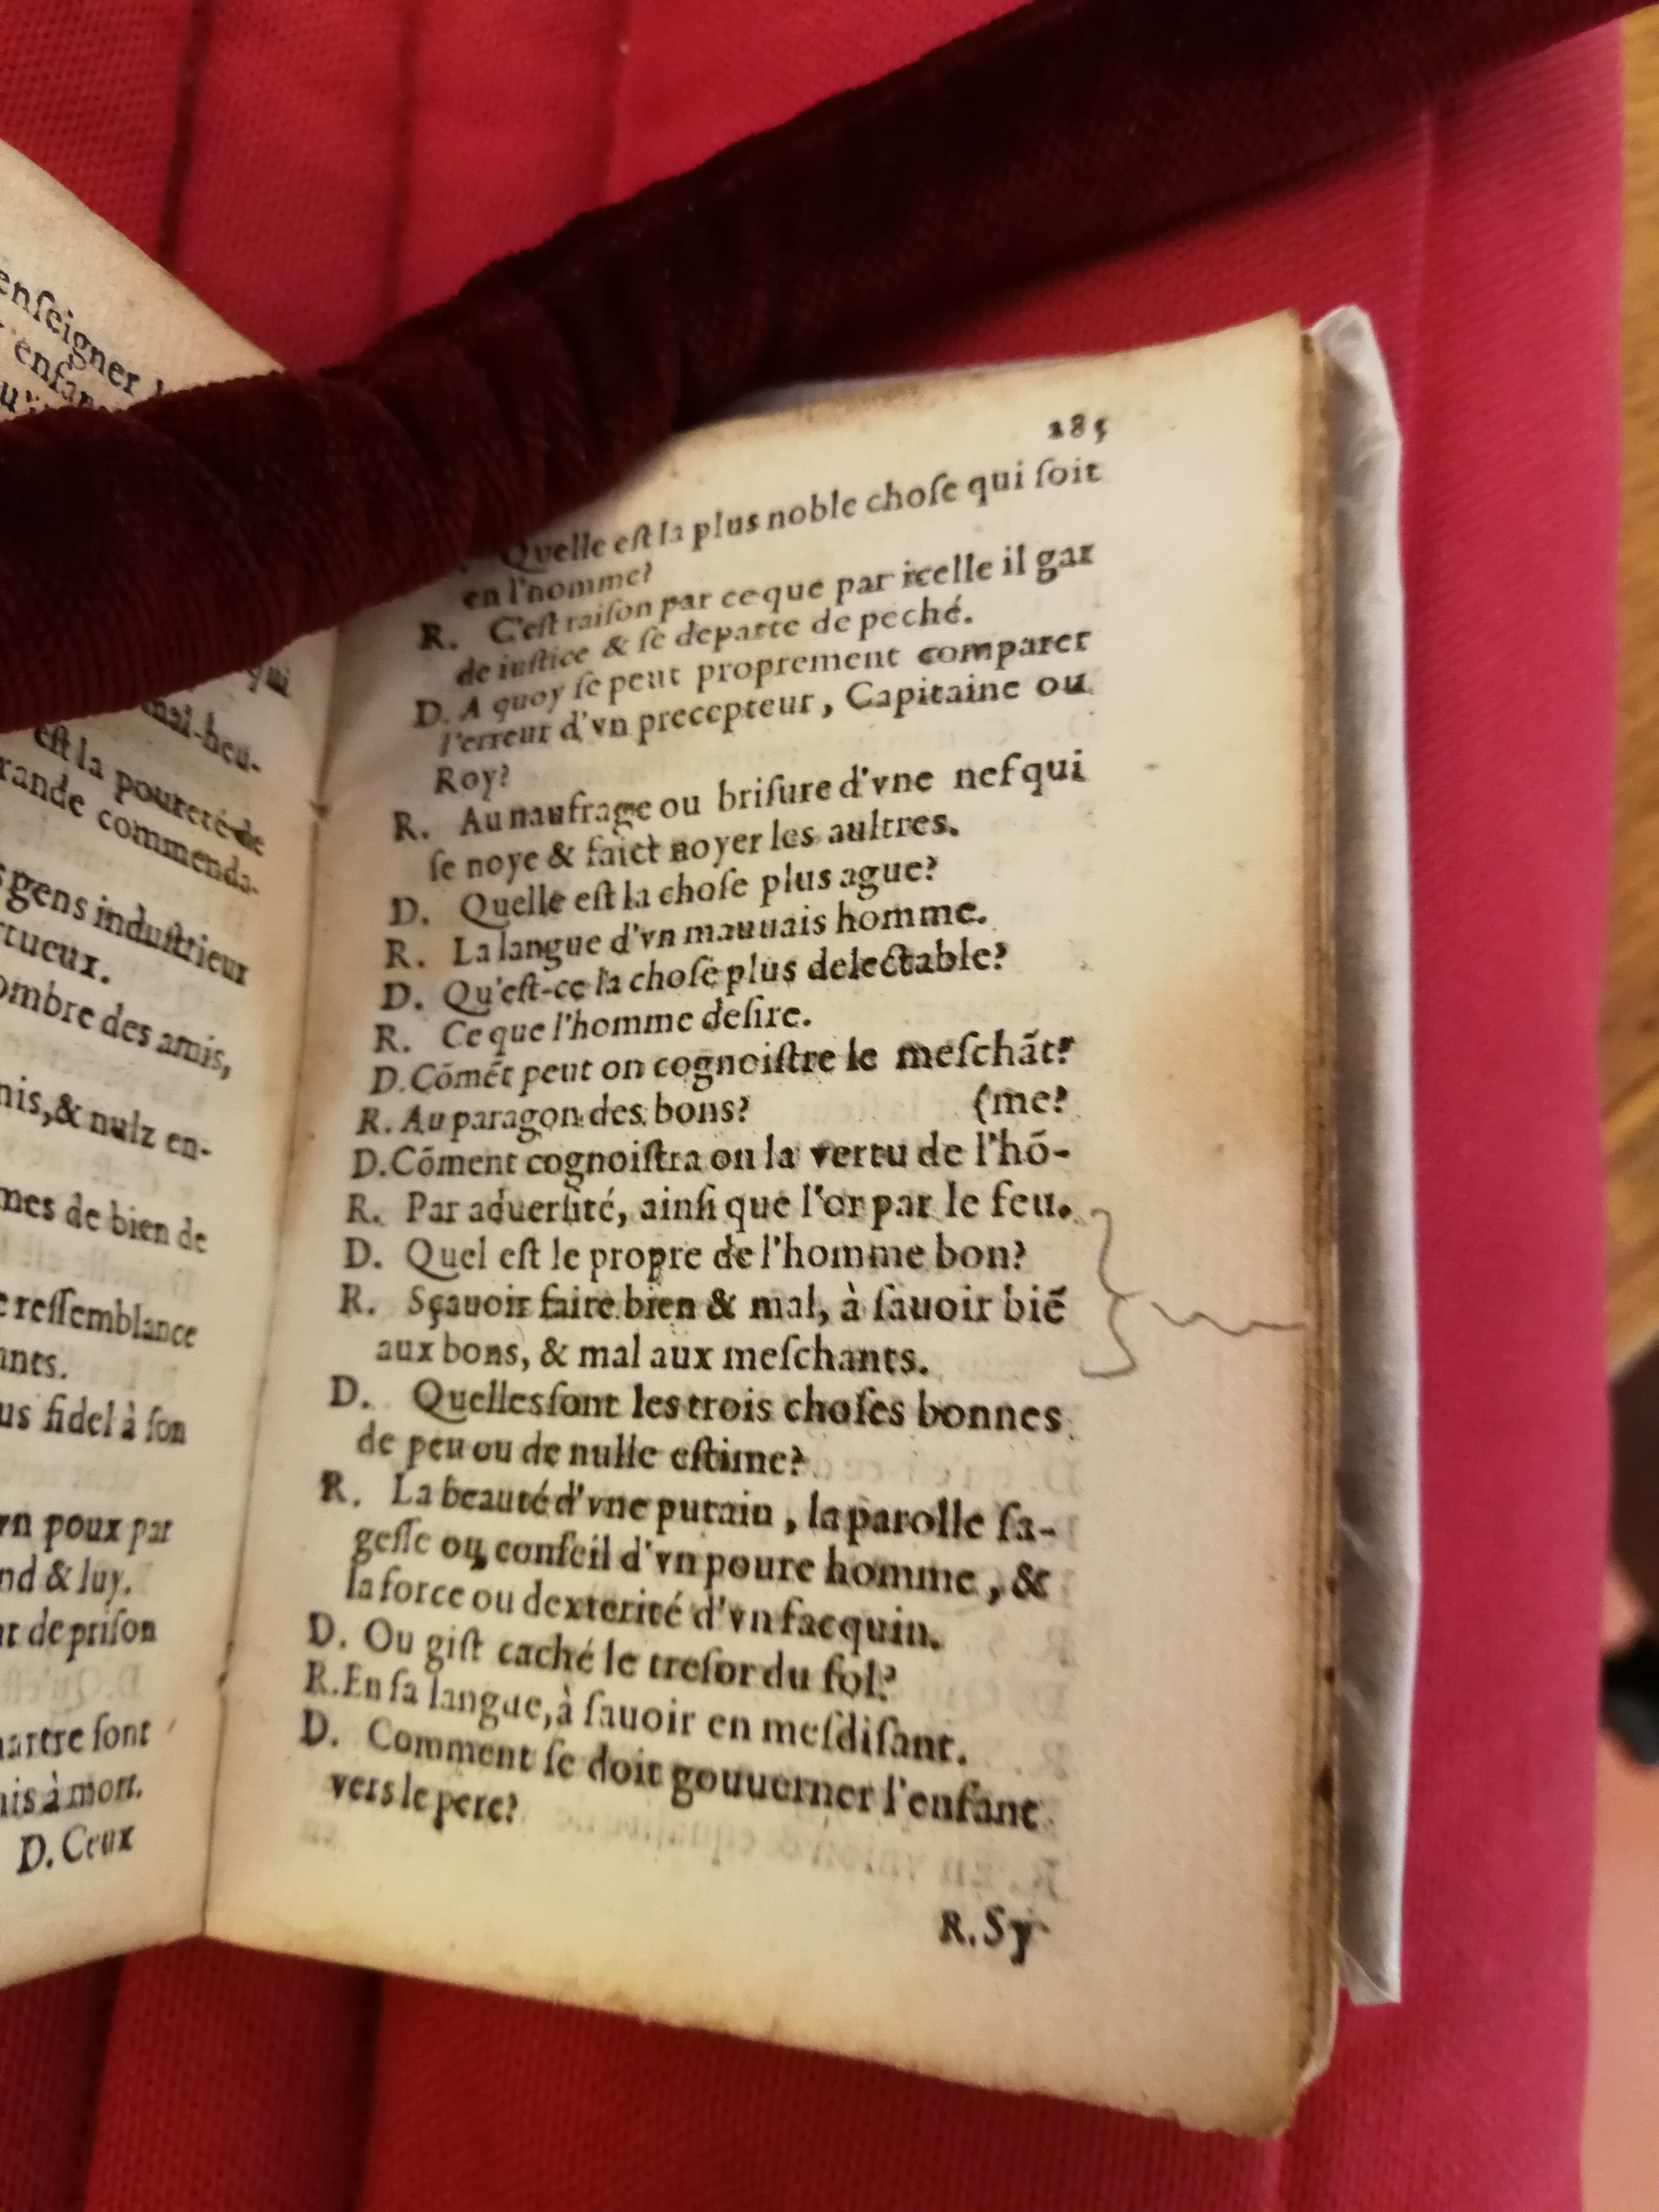 enſeigner
enfan
qui
mal-heu-
eſt la poureté de
rande commenda-
s gens induſtrieux
rtueux.
ombre des amis,
nis, & nulz en-
mes de bien de
e reſſemblance
ants.
us fidel à ſon
vn poux par
nd & luy.
nt de priſon
hartre ſont
nis à mort.
D. Ceux
285
Quelle eſt la plus noble choſe qui ſoit
en l'homme?
R. C'eſt raiſon par ce que par icelle il gar
de iuſtice & ſe departe de peché.
D. A quoy ſe peut proprement comparer
l'erreur d'vn precepteur, Capitaine ou
Roy?
R. Au naufrage ou briſure d'vne nef qui
ſe noye & faict noyer les aultres.
D. Quelle eſt la choſe plus ague?
R. La langue d'vn mauuais homme.
D. Qu'eſt-ce la choſe plus delectable?
R. Ce que l'homme deſire.
D. Cõmẽt peut on cognoiſtre le meſchãt?
R. Au paragon des bons? (me?
D. Cõment cognoiſtra on la vertu de l'hõ-
R. Par aduerſité, ainſi que l'or par le feu.
D. Quel eſt le propre de l'homme bon?
R. Sçauoir faire bien & mal, à ſauoir biẽ
aux bons, & mal aux meſchants.
D. Quelles ſont les trois choſes bonnes
de peu ou de nulle eſtime?
R. La beauté d'vne putain, la parolle ſa-
geſſe ou conſeil d'vn poure homme, &
la force ou dexterité d'vn facquin.
D. Ou giſt caché le treſor du fol?
R. En ſa langue, à ſauoir en meſdiſant.
D. Comment ſe doit gouuerner l'enfant
vers le pere?
R. Sy